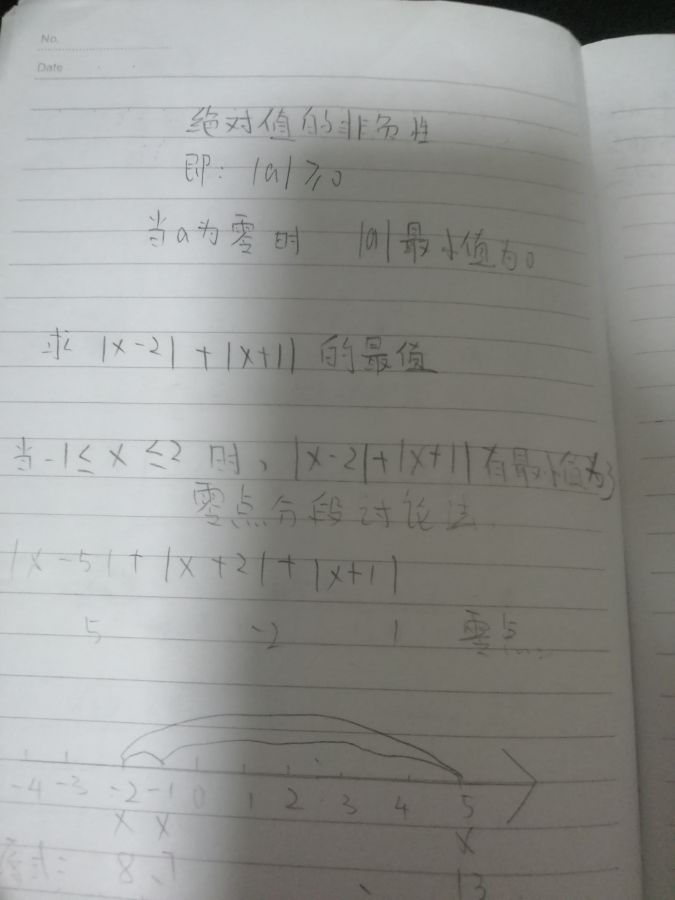 No.
Date
绝对值的非负性
即: |a|≥0
当a为零时 |a|最小值为0
求 |x-2|+|x+1| 的最值
当-1≤x≤2时, |x-2|+|x+1|有最小值为3
零点分段讨论法.
|x-5|+|x+2|+|x+1|
5 -2 1 零点
-4 -3 -2 -1 0 1 2 3 4 5
x x x
8、7 、 13